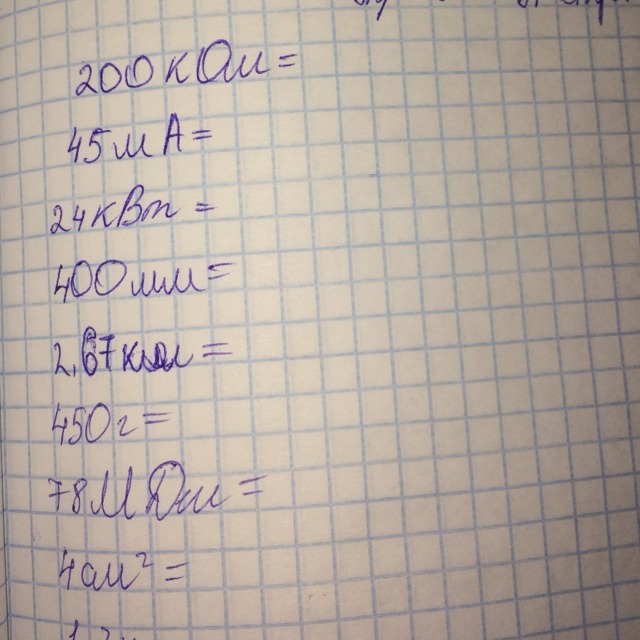 200 кОм =
45 мА =
24 кВт =
400 мм =
2,67 к
450 г =
78 М
4 см² =